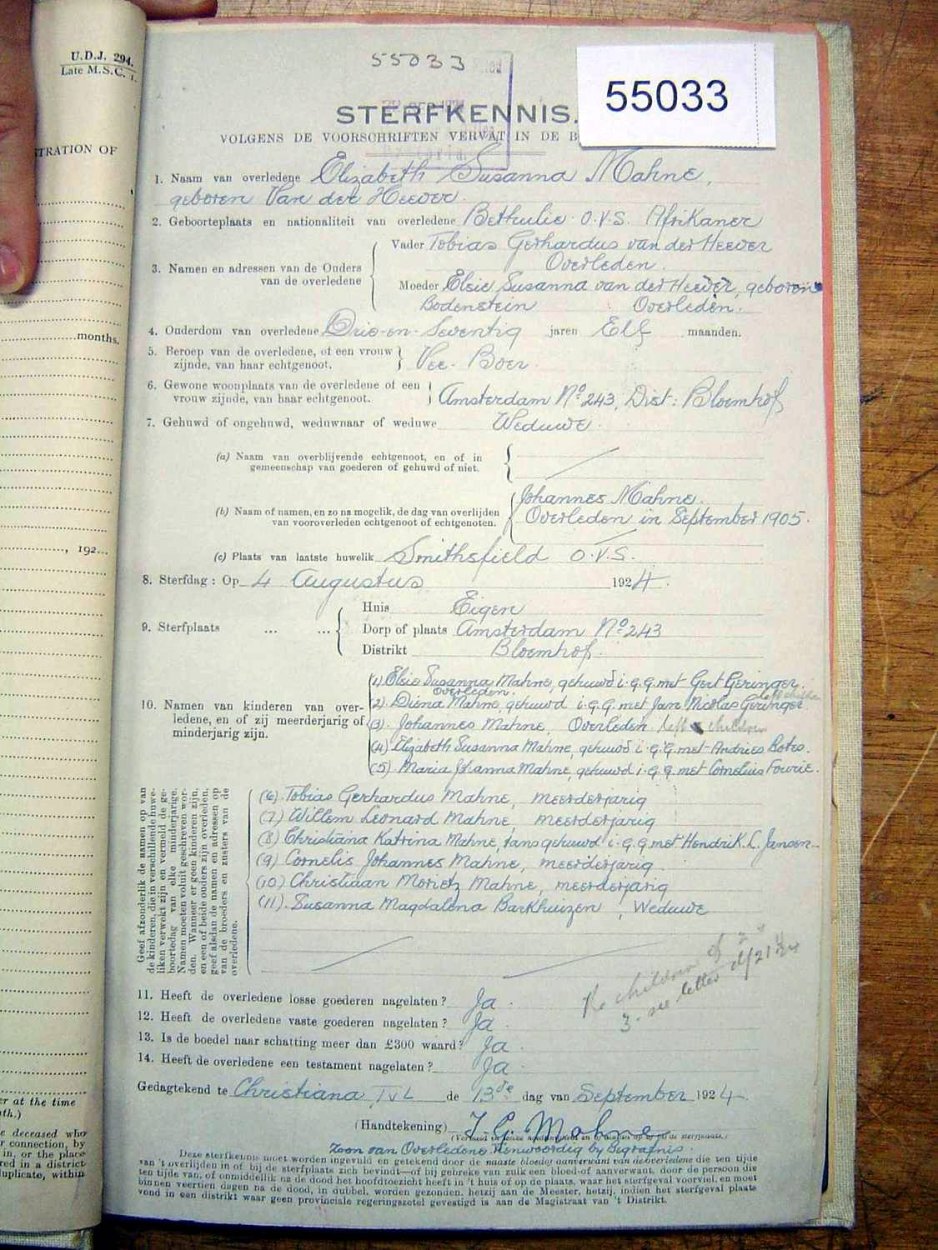 U.D.J. 294.
Late M.S.C. 1.
STRATION OF
months.
, 192...
er at the time
th.)
e deceased who
r connection, by
in, or the place
red in a district
duplicate, within
55033
55033
STERFKENNIS.
VOLGENS DE VOORSCHRIFTEN VERVAT IN DE B
1. Naam van overledene Elizabeth Susanna Mahne,
geboren Van der Heever.
2. Geboorteplaats en nationaliteit van overledene Bethulie O.V.S. Afrikaner
3. Namen en adressen van de Ouders van de overledene
Vader Tobias Gerhardus van der Heever
Overleden.
Moeder Elsie Susanna van der Heever, geboren
Bodenstein Overleden.
4. Onderdom van overledene Drie-en-Seventig jaren Elf maanden.
5. Beroep van de overledene, of een vrouw
zijnde, van haar echtgenoot. Vee-Boer.
6. Gewone woonplaats van de overledene of een
vrouw zijnde, van haar echtgenoot. Amsterdam No 243, Dist: Bloemhof
7. Gehuwd of ongehuwd, weduwnaar of weduwe Weduwe.
(a) Naam van overblijvende echtgenoot, en of in
gemeenschap van goederen of gehuwd of niet.
(b) Naam of namen, en zo na mogelik, de dag van overlijden
van vooroverleden echtgenoot of echtgenoten.
Johannes Mahne.
Overleden in September 1905.
(c) Plaats van laatste huwelik Smithsfield O.V.S.
8. Sterfdag: Op 4 Augustus 1924.
9. Sterfplaats ... ...
Huis Eigen
Dorp of plaats Amsterdam No 243
Distrikt Bloemhof.
10. Namen van kinderen van over-
ledene, en of zij meerderjarig of
minderjarig zijn.
(1) Elsie Susanna Mahne, gehuwd i.g.g. met Gert Geringer.
overleden. left children
(2) Diena Mahne, gehuwd i.g.g. met Jan Nicolas Geringer
(3). Johannes Mahne, Overleden left children
(4) Elizabeth Susanna Mahne, gehuwd i.g.g. met Andries Botes.
(5) Maria Johanna Mahne, gehuwd i.g.g. met Cornelius Fourie.
Geef afzonderlik de namen op van
de kinderen, die in verschillende huwe-
liken verwekt zijn en vermeld de ge-
boortedag van elke minderjarige.
Namen moeten voluit geschreven wor-
den. Wanneer er geen kinderen zijn,
en een of beide ouders zijn overleden,
geef alsdan de namen en adressen op
van de broeders en zusters van de
overledene.
(6) Tobias Gerhardus Mahne, meerderjarig
(7) Willem Leonard Mahne meerderjarig
(8) Christiana Katrina Mahne, tans gehuwd i.g.g. met Hendrik L. Jansen
(9) Cornelis Johannes Mahne, meerderjarig
(10) Christiaan Morietz Mahne, meerderjarig
(11). Susanna Magdalena Barkhuizen, Weduwe
Re children of 2 &
3 - see letter
11. Heeft de overledene losse goederen nagelaten? Ja.
12. Heeft de overledene vaste goederen nagelaten? Ja.
13. Is de boedel naar schatting meer dan £300 waard? Ja
14. Heeft de overledene een testament nagelaten? Ja.
Gedagtekend te Christiana Tvl de 13de dag van September 1924
(Handtekening) T. G. Mahne
Zoon van Overledene tienwoordig by begrafnis.
Deze sterfkennis moet worden ingevuld en getekend door de naaste bloedverwant van de overledene die ten tijde
van 't overlijden in of bij de sterfplaats zich bevindt—of bij gebreke van zulk een bloed-of aanverwant, door de persoon die
ten tijde van, of onmiddellik na de dood het hoofdtoezicht heeft in 't huis of op de plaats, waar het sterfgeval voorviel, en moet
binnen veertien dagen na de dood, in dubbel, worden gezonden, hetzij aan de Meester, hetzij, indien het sterfgeval plaats
vond in een distrikt waar geen provinciale regeringszetel gevestigd is aan de Magistraat van 't Distrikt.